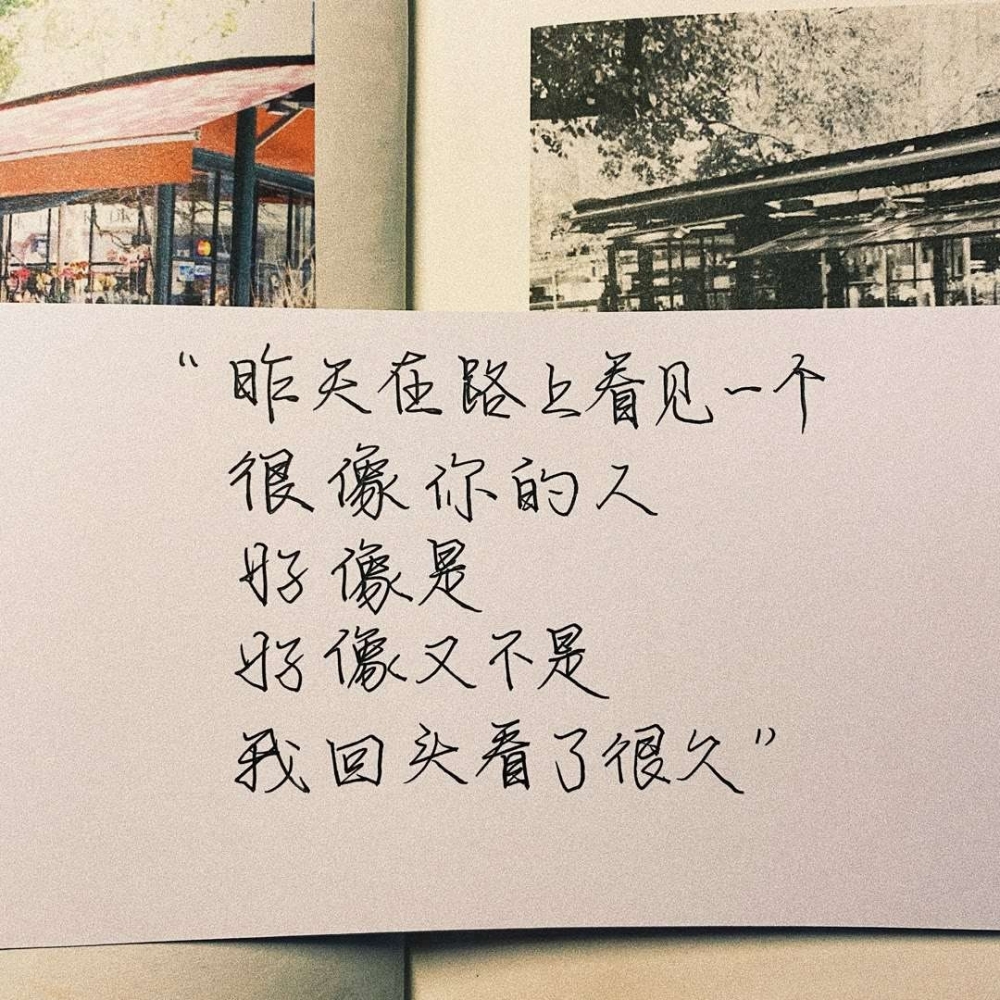 “昨天在路上看见一个
很像你的人
好像是
好像又不是
我回头看了很久”